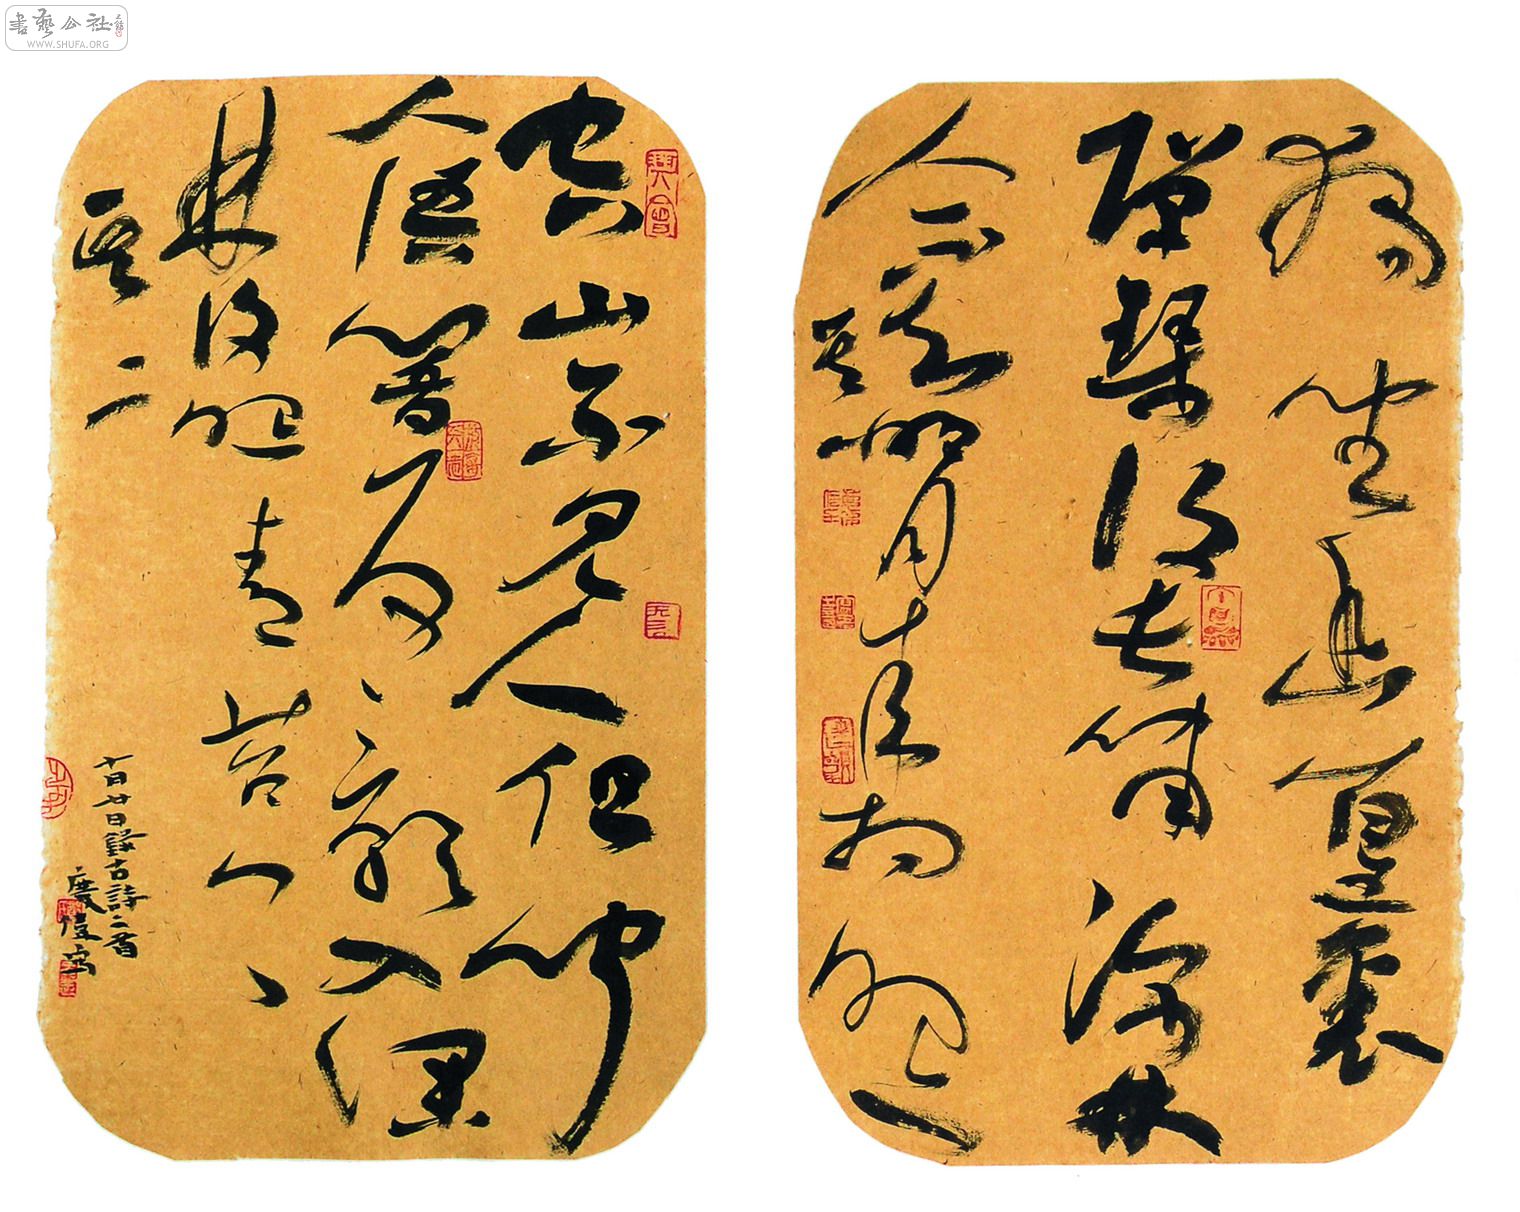 書藝公社
WWW.SHUFA.ORG
獨坐幽篁裏
彈琴復長嘯深林
人不知明月來相照
其一
空山不見人但聞
人語響返景入深
林復照青苔上
其二
十月廿日錄古詩二首
慶俊寫